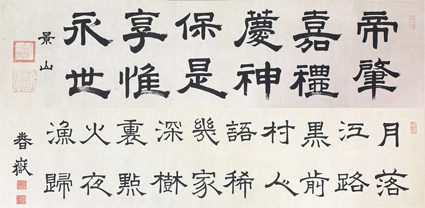 帝肇
嘉禮
慶神
保是
享惟
永世
景山
月落
江路
黒前
村人
語稀
幾家
深樹
裏點
火夜
漁歸
春嶽